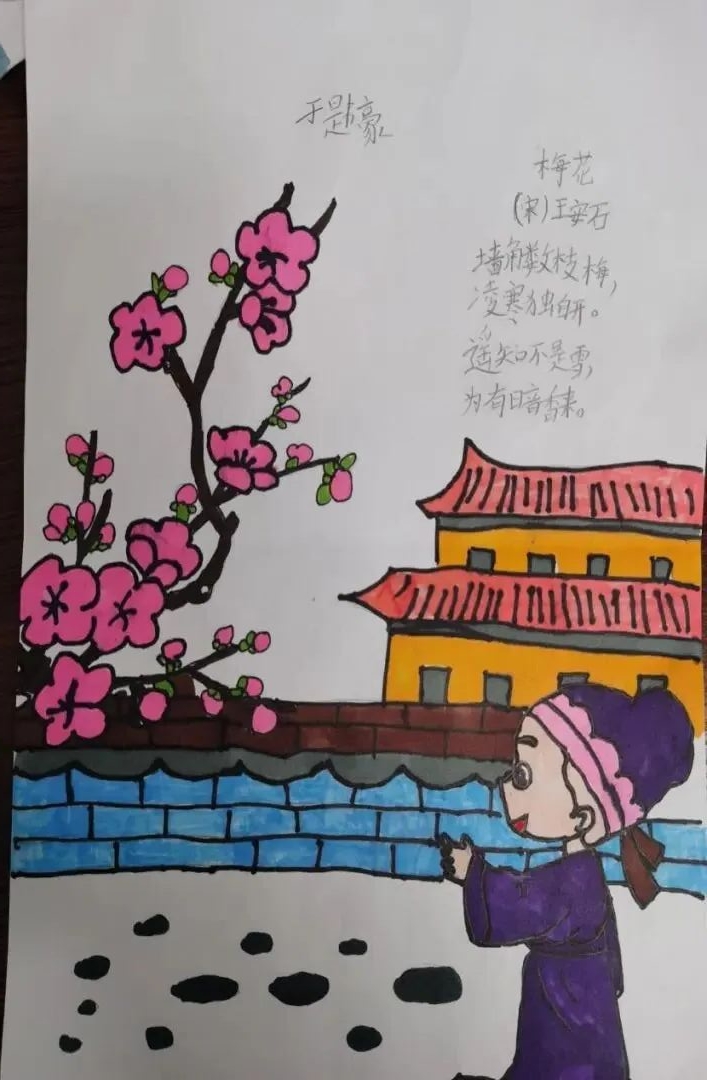 于是豪
梅花
(宋)王安石
墙角数枝梅，
凌寒独自开。
遥知不是雪，
为有暗香来。